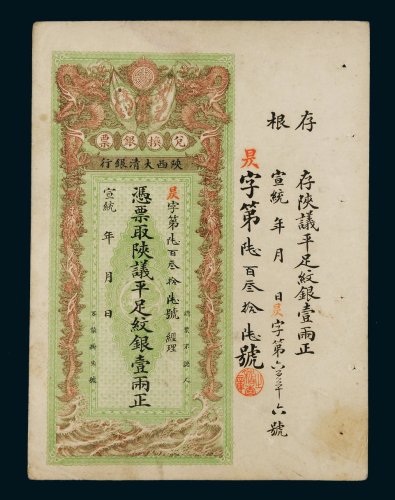 存根
存陝議平足紋銀壹兩正
宣統 年 月 日昃字第六百三十六號
昃字第陸百叁拾陸號
兌換銀票
陝西大清銀行
認票不認人
昃字第陸百叁拾陸號 經理
憑票取陝議平足紋銀壹兩正
宣統 年 月 日